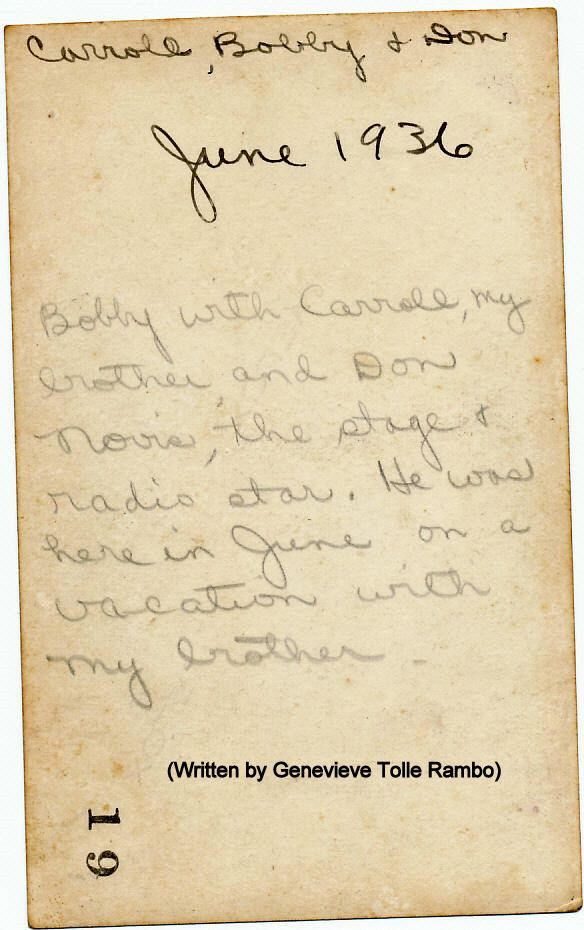 Carroll, Bobby & Don
June 1936
Bobby with Carroll, my
brother and Don
Novis, the stage &
radio star. He was
here in June on a
vacation with
my brother -
(Written by Genevieve Tolle Rambo)
19